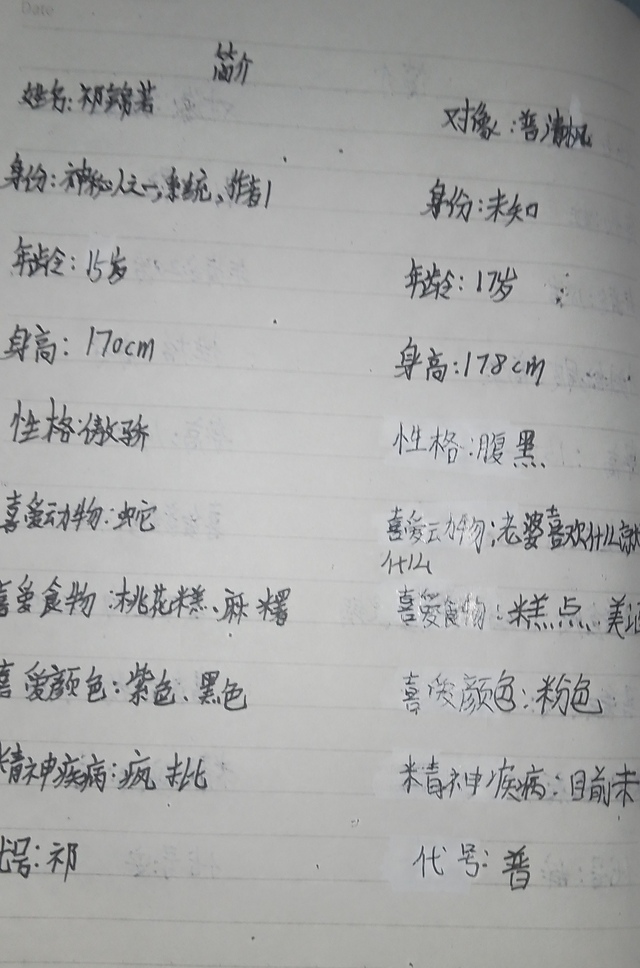 Date
简介
姓名:祁锦若
身份:神秘人之一,系统、作者1
年龄:15岁
身高:170cm
性格:傲骄
喜爱动物:蛇
喜爱食物:桃花糕、麻糬
喜爱颜色:紫色、黑色
精神疾病:疯批
代号:祁
对象:普清枫
身份:未知
年龄:17岁
身高:178cm
性格:腹黑
喜爱动物:老婆喜欢什么就
什么
喜爱食物:糕点、美
喜爱颜色:粉色
精神疾病:目前未
代号:普